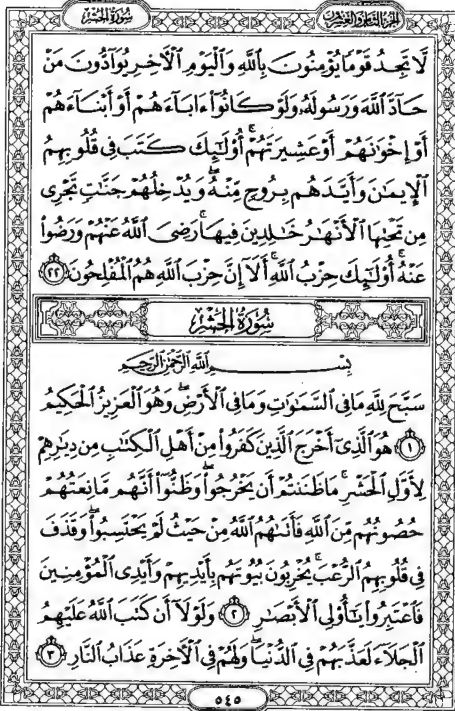 الجزء الثامن والعشرون
سورة الحشر
لَّا تَجِدُ قَوْمًا يُؤْمِنُونَ بِٱللَّهِ وَٱلْيَوْمِ ٱلْأَخِرِ يُوَآدُّونَ مَنْ
حَآدَّ ٱللَّهَ وَرَسُولَهُۥ وَلَوْ كَانُوٓا۟ ءَابَآءَهُمْ أَوْ أَبْنَآءَهُمْ
أَوْ إِخْوَٰنَهُمْ أَوْ عَشِيرَتَهُمْ ۚ أُو۟لَٰٓئِكَ كَتَبَ فِى قُلُوبِهِمُ
ٱلْإِيمَٰنَ وَأَيَّدَهُم بِرُوحٍ مِّنْهُ ۖ وَيُدْخِلُهُمْ جَنَّٰتٍ تَجْرِى
مِن تَحْتِهَا ٱلْأَنْهَٰرُ خَٰلِدِينَ فِيهَا ۚ رَضِىَ ٱللَّهُ عَنْهُمْ وَرَضُوا۟
عَنْهُ ۚ أُو۟لَٰٓئِكَ حِزْبُ ٱللَّهِ ۚ أَلَآ إِنَّ حِزْبَ ٱللَّهِ هُمُ ٱلْمُفْلِحُونَ ٢٢
سُورَةُ الْحَشْرِ
بِسْمِ ٱللَّهِ ٱلرَّحْمَٰنِ ٱلرَّحِيمِ
سَبَّحَ لِلَّهِ مَا فِى ٱلسَّمَٰوَٰتِ وَمَا فِى ٱلْأَرْضِ ۖ وَهُوَ ٱلْعَزِيزُ ٱلْحَكِيمُ
١ هُوَ ٱلَّذِىٓ أَخْرَجَ ٱلَّذِينَ كَفَرُوا۟ مِنْ أَهْلِ ٱلْكِتَٰبِ مِن دِيَٰرِهِمْ
لِأَوَّلِ ٱلْحَشْرِ ۚ مَا ظَنَنتُمْ أَن يَخْرُجُوا۟ ۖ وَظَنُّوٓا۟ أَنَّهُم مَّانِعَتُهُمْ
حُصُونُهُم مِّنَ ٱللَّهِ فَأَتَىٰهُمُ ٱللَّهُ مِنْ حَيْثُ لَمْ يَحْتَسِبُوا۟ ۖ وَقَذَفَ
فِى قُلُوبِهِمُ ٱلرُّعْبَ ۚ يُخْرِبُونَ بُيُوتَهُم بِأَيْدِيهِمْ وَأَيْدِى ٱلْمُؤْمِنِينَ
فَٱعْتَبِرُوا۟ يَٰٓأُو۟لِى ٱلْأَبْصَٰرِ ٢ وَلَوْلَآ أَن كَتَبَ ٱللَّهُ عَلَيْهِمُ
ٱلْجَلَآءَ لَعَذَّبَهُمْ فِى ٱلدُّنْيَا ۖ وَلَهُمْ فِى ٱلْأَخِرَةِ عَذَابُ ٱلنَّارِ ٣
٥٤٥